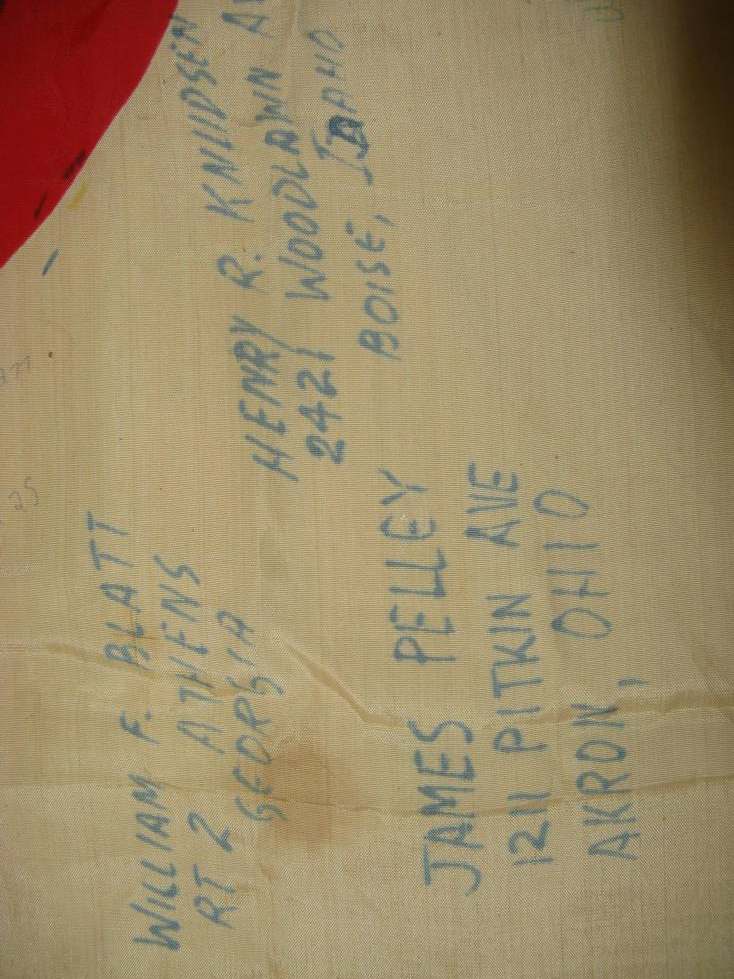 WILLIAM F. BLATT
RT 2 ATHENS
GEORGIA
HENRY R. KNUDSEN
2421 WOODLAWN A
BOISE, IDAHO
JAMES PELLEY
1211 PITKIN AVE
AKRON, OHIO